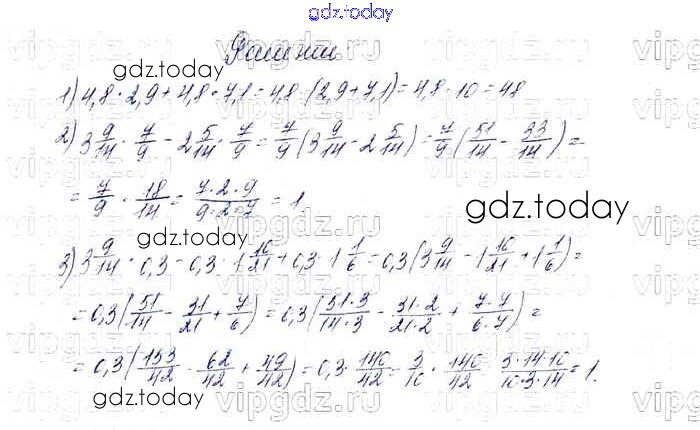 gdz.today
Решение:
gdz.today
1) 4,8 · 2,9 + 4,8 · 7,1 = 4,8 · (2,9 + 7,1) = 4,8 · 10 = 48
2) 3 9/14 · 7/9 - 2 5/14 · 7/9 = 7/9 (3 9/14 - 2 5/14) = 7/9 (51/14 - 33/14) =
= 7/9 · 18/14 = 7·2·9/9·2·7 = 1
gdz.today
3) 3 9/14 · 0,3 - 0,3 · 1 10/21 + 0,3 · 1 1/6 = 0,3 (3 9/14 - 1 10/21 + 1 1/6) =
= 0,3 (51/14 - 31/21 + 7/6) = 0,3 (51·3/14·3 - 31·2/21·2 + 7·7/6·7) =
= 0,3 (153/42 - 62/42 + 49/42) = 0,3 · 140/42 = 3/10 · 140/42 = 3·14·10/10·3·14 = 1.
gdz.today
gdz.today
vipgdz.ru